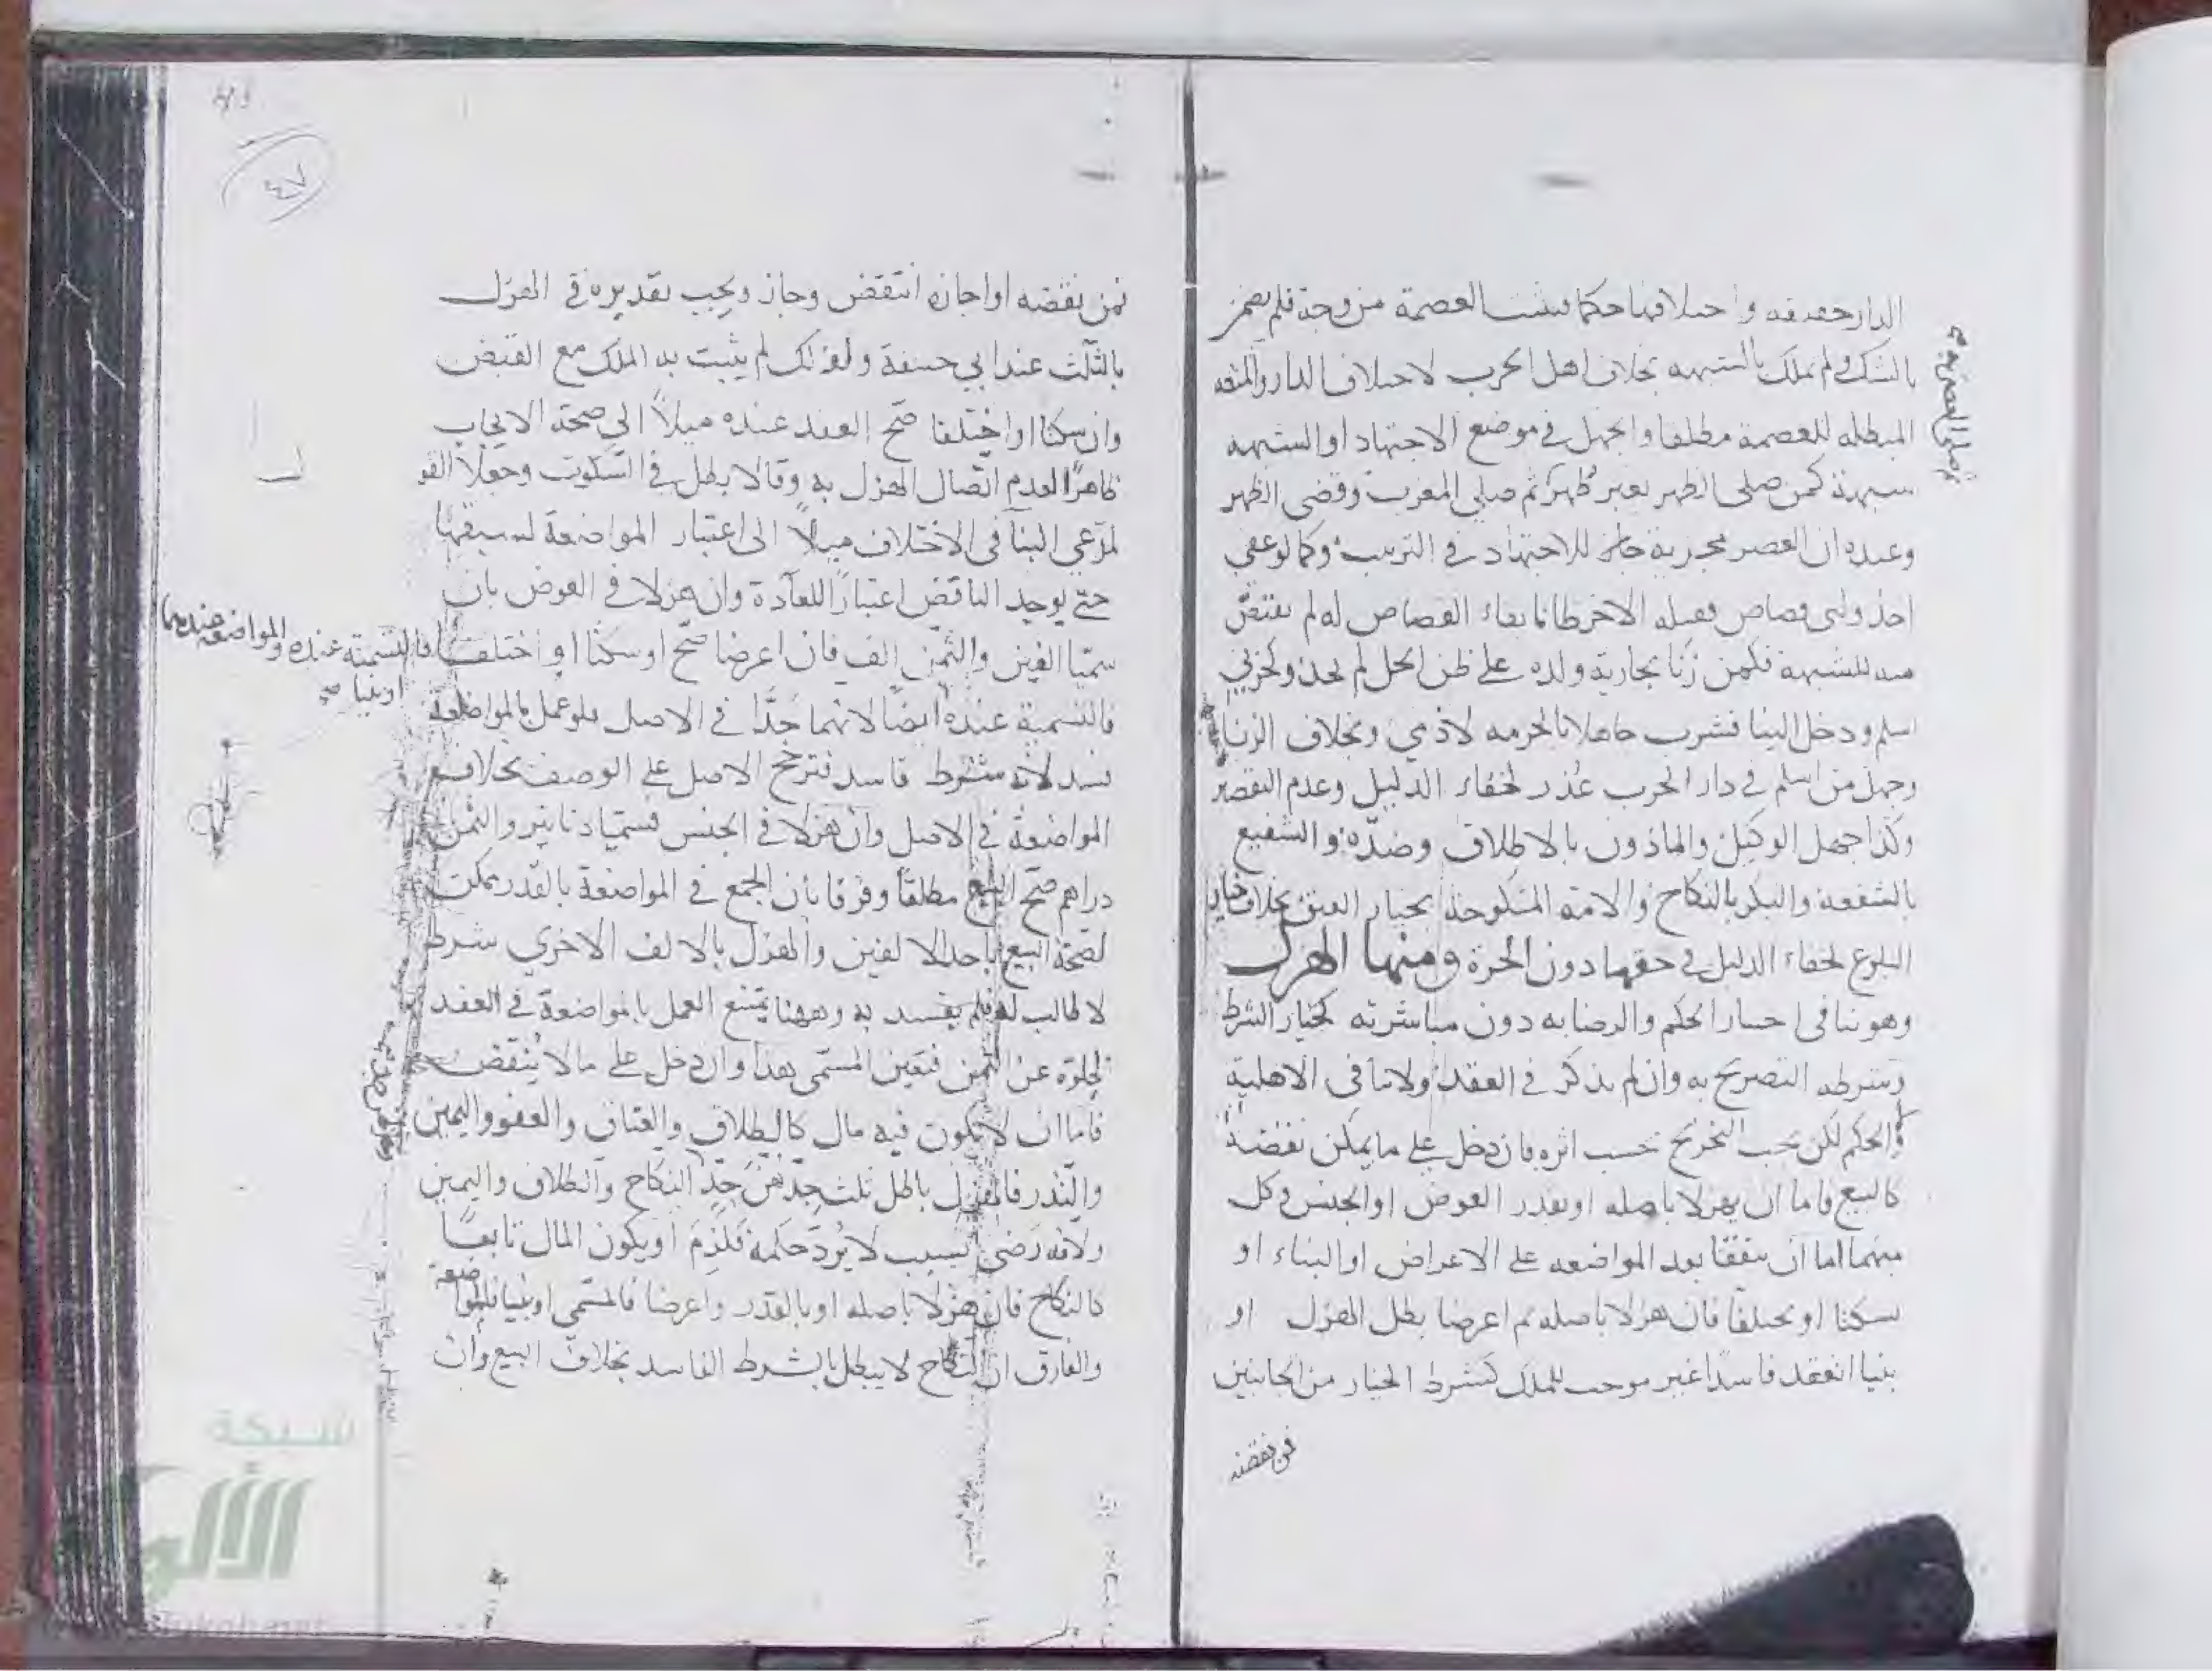 الدار حقيقه واختلافها حكما فتثبت العصمة من وجه فلم يضمن
بالشك ولم يملك بالشبهه بخلاف اهل الحرب لاختلاف الدار والمنعه
المبطله للعصمة مطلقا والجهل في موضع الاجتهاد او الشبهه
شبهة كمن صلى الظهر بغير طهر ثم صلى المغرب وقضى الظهر
وعنده ان العصر مجزية جائز للاجتهاد في الترتيب وكما لو عفي
احد وليي قصاص فقتله الاخر ظانا بقاء القصاص له لم يقتص
منه للشبهة فكمن زنا بجارية ولده على ظن الحل لم يحد وكحربي
اسلم ودخل الينا فشرب جاهلا بالحرمه لا ذمي وبخلاف الزنا
وجهل من اسلم في دار الحرب عذر لخفاء الدليل وعدم التقصير
وكذا جهل الوكيل والماذون بالاطلاق وضده والشفيع
بالشفعة والبكر بالنكاح والامة المنكوحة بخيار العتق بخلاف خيار
البلوغ لخفاء الدليل في حقها دون الحرة ومنها الهزل
وهو ينافي اختيار الحكم والرضا به دون مباشرته كخيار الشرط
وشرطه التصريح به وان لم يذكر في العقد ولا ينافي الاهلية
والحكم لكن يجب التخريج بحسب اثره فان دخل على ما يمكن نقضه
كالبيع فاما ان يهزلا باصله او بقدر العوض او الجنس وكل
منهما اما ان يتفقا بعد المواضعه على الاعراض او البناء او
سكتا او يختلفا فان هزلا باصله ثم اعرضا بطل الهزل او
بنيا انعقد فاسدا غير موجب للملك كشرط الخيار من الجانبين
فمن نقضه
٤٧
فمن نقضه او اجازه انتقض وجاز ويجب تقديره في الهزل
بالثلث عند ابي حنيفة ولهذا لم يثبت به الملك مع القبض
وان سكتا او اختلفا صح العقد عنده ميلاً الى صحة الايجاب
ظاهرًا لعدم اتصال الهزل به وقالا بطل في السكوت وجعلا القو
لمدعي البنآ في الاختلاف ميلاً الى اعتبار المواضعة لسبقها
حتى يوجد الناقض اعتبارًا للعآدة وان هزلا في العوض بان
سميا الفين والثمن الف فان اعرضا صح او سكتا او اختلفا فالتسمية عنده والمواضعة عندهما
او بنيا صح
فالتسمية عنده ايضًا لانهما جدّا في الاصل فلو عمل بالمواضعة
فسد لانه شرط فاسد فترجح الاصل على الوصف بخلاف
المواضعة في الاصل وان هزلا في الجنس فسميا دنانير والثمن
دراهم صح البيع مطلقًا وفرقا بان الجمع في المواضعة بالقدر ممكن
لصحة البيع باحد الالفين والهزل بالالف الاخري شرط
لا طالب له فلم يفسد به وههنا يمتنع العمل بالمواضعة في العقد
لخلوه عن الثمن فتعين المسمى هذا وان دخل على ما لا ينقض
فاما ان لا يكون فيه مال كالطلاق والعتاق والعفو واليمين
والنذر فالهزل باطل ثلث جدهن جدّ النكاح والطلاق واليمين
ولانه رضى بسبب لا يُردّ حكمه فلزم او يكون المال تابعًا
كالنكاح فان هزلا باصله او بالقدر واعرضا فالمسمى او بنيا فالمواضعة
والفارق ان النكاح لا يبطل بالشرط الفاسد بخلاف البيع وان
شبكة
الألوكة